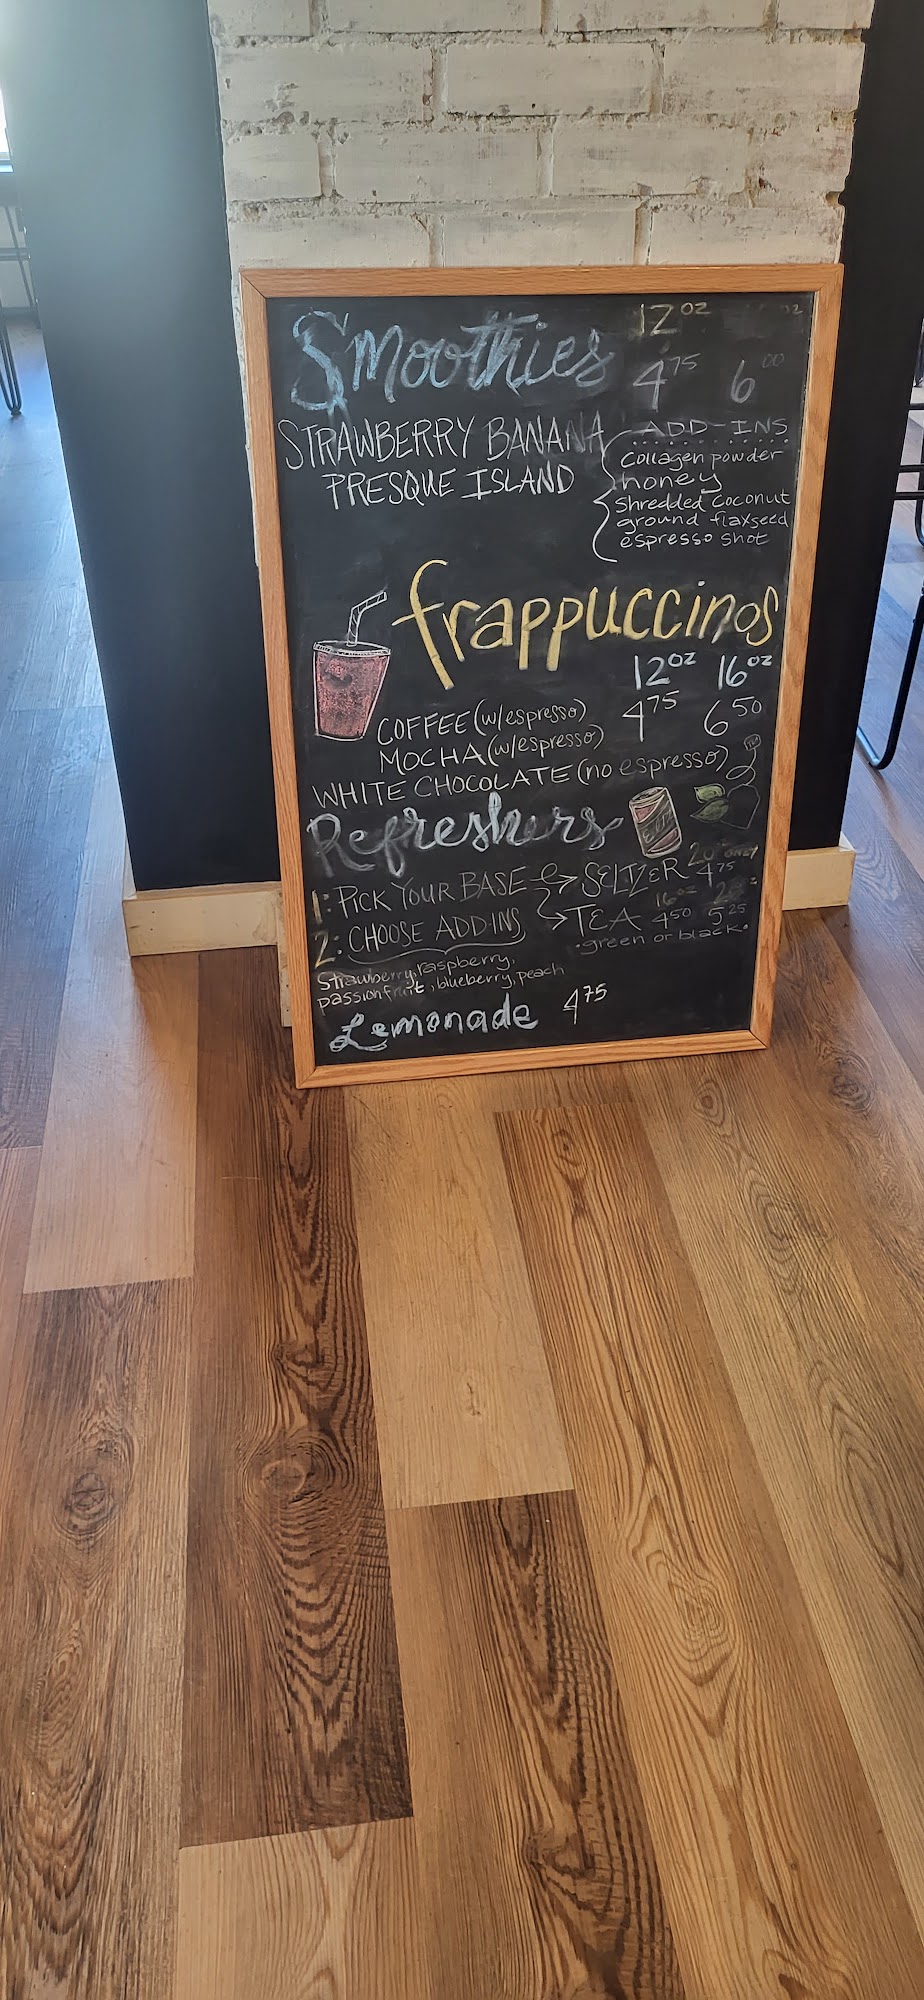 Smoothies 12oz
4.75 6.00
STRAWBERRY BANANA
PRESQUE ISLAND
ADD-INS
Collagen powder
honey
Shredded Coconut
ground flaxseed
espresso shot
frappuccinos
12oz 16oz
4.75 6.50
COFFEE (w/espresso)
MOCHA (w/espresso)
WHITE CHOCOLATE (no espresso)
Refreshers
1: PICK YOUR BASE → SELTZER 4.75
→ TEA 16oz 4.50 5.25
• green or black •
2: CHOOSE ADD-INS
Strawberry, raspberry,
passionfruit, blueberry, peach
Lemonade 4.75